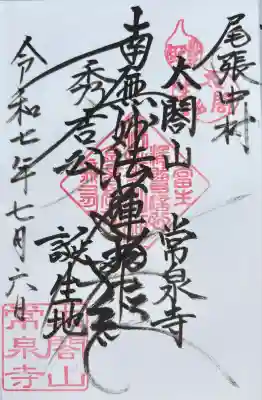 尾張中村
太閤山 常泉寺
南無妙法蓮華経
秀吉公 誕生地
令和七年七月六日
太閤山
常泉寺